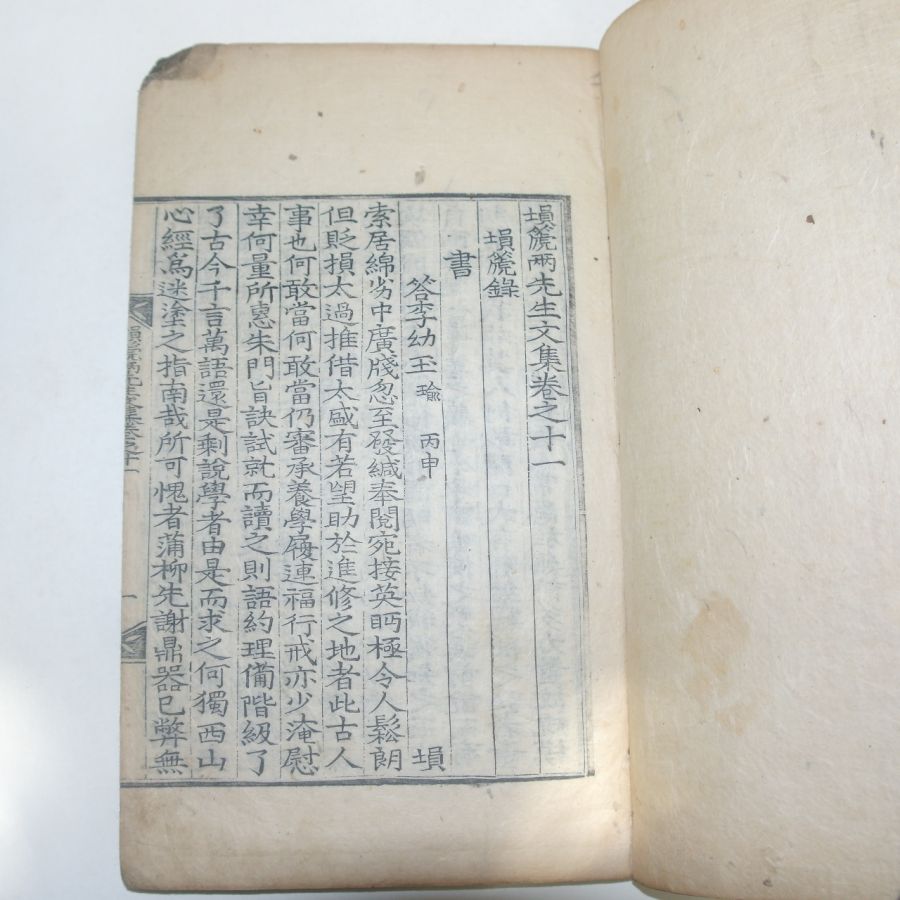 塤篪兩先生文集卷之十一
塤篪錄
書
答李幼玉 瑜 丙申 塤
索居綿劣中廣牋忽至發緘奉閱宛接英眄極令人鬆朗
但貶損太過推借太盛有若望助於進修之地者此古人
事也何敢當何敢當仍審承養學履連福行戒亦少淹慰
幸何量所惠朱門旨訣試就而讀之則語約理備階級了
了古今千言萬語還是剩說學者由是而求之何獨西山
心經爲迷塗之指南哉所可愧者蒲柳先謝鼎器已弊無
塤篪兩先生文集卷之十一
一